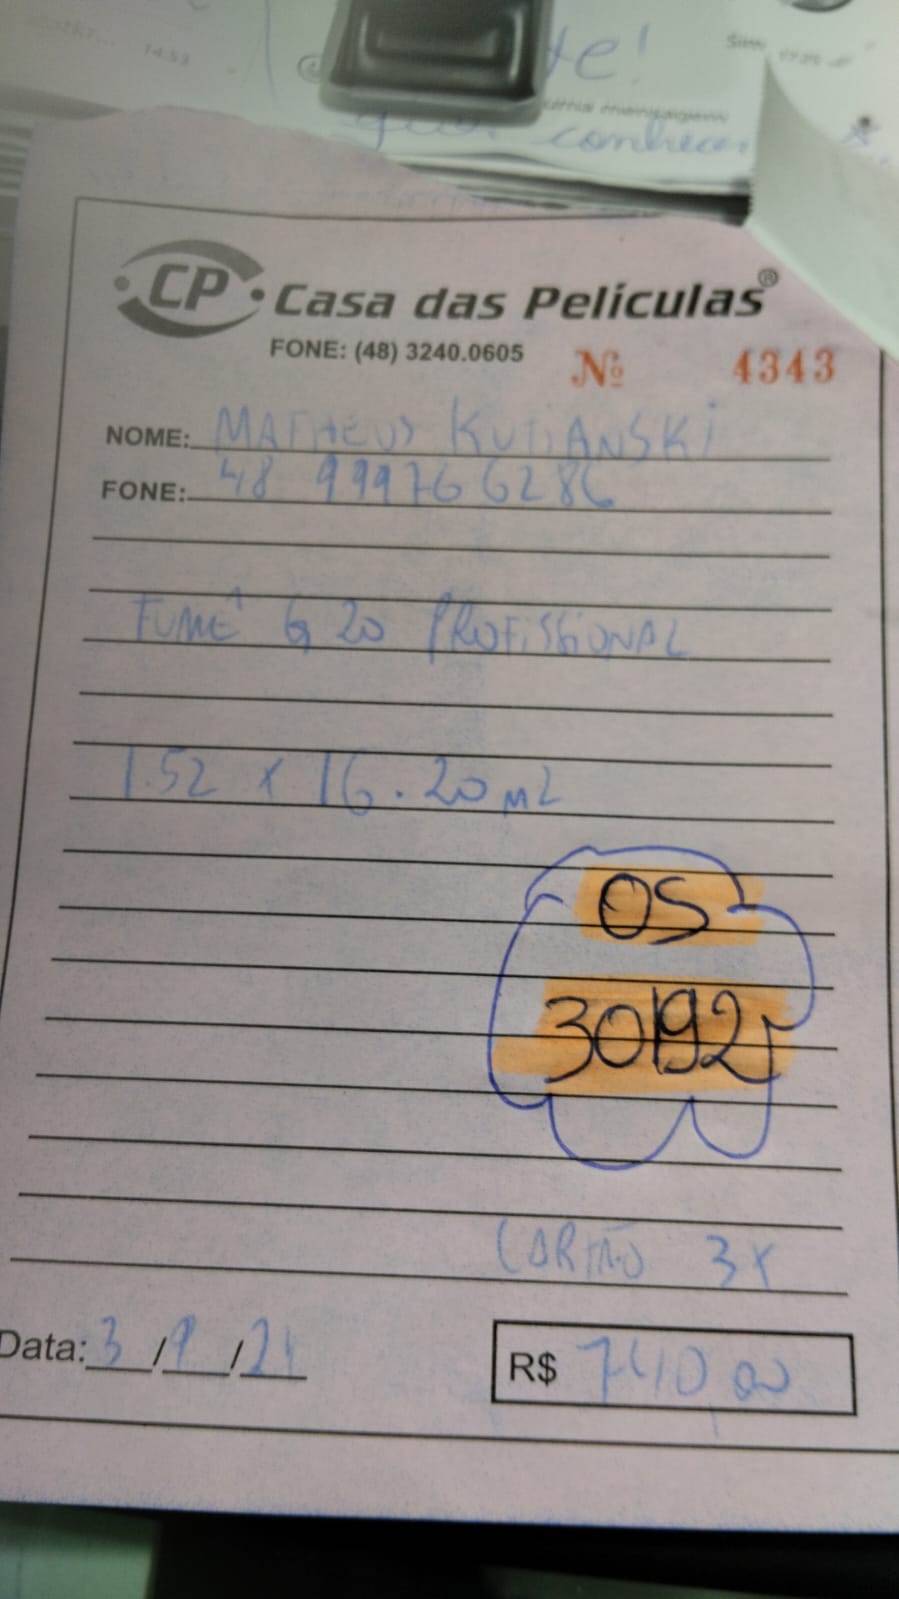 14:53
te!
quer conhecer
CP Casa das Películas®
FONE: (48) 3240.0605
Nº 4343
NOME: MATHEUS KUJIANSKI
FONE: 48 999766286
FUMÊ G20 PROFISSIONAL
1.52 x 16.20 M2
OS
30192
CARTÃO 3X
Data: 3/9/21
R$ 740,00